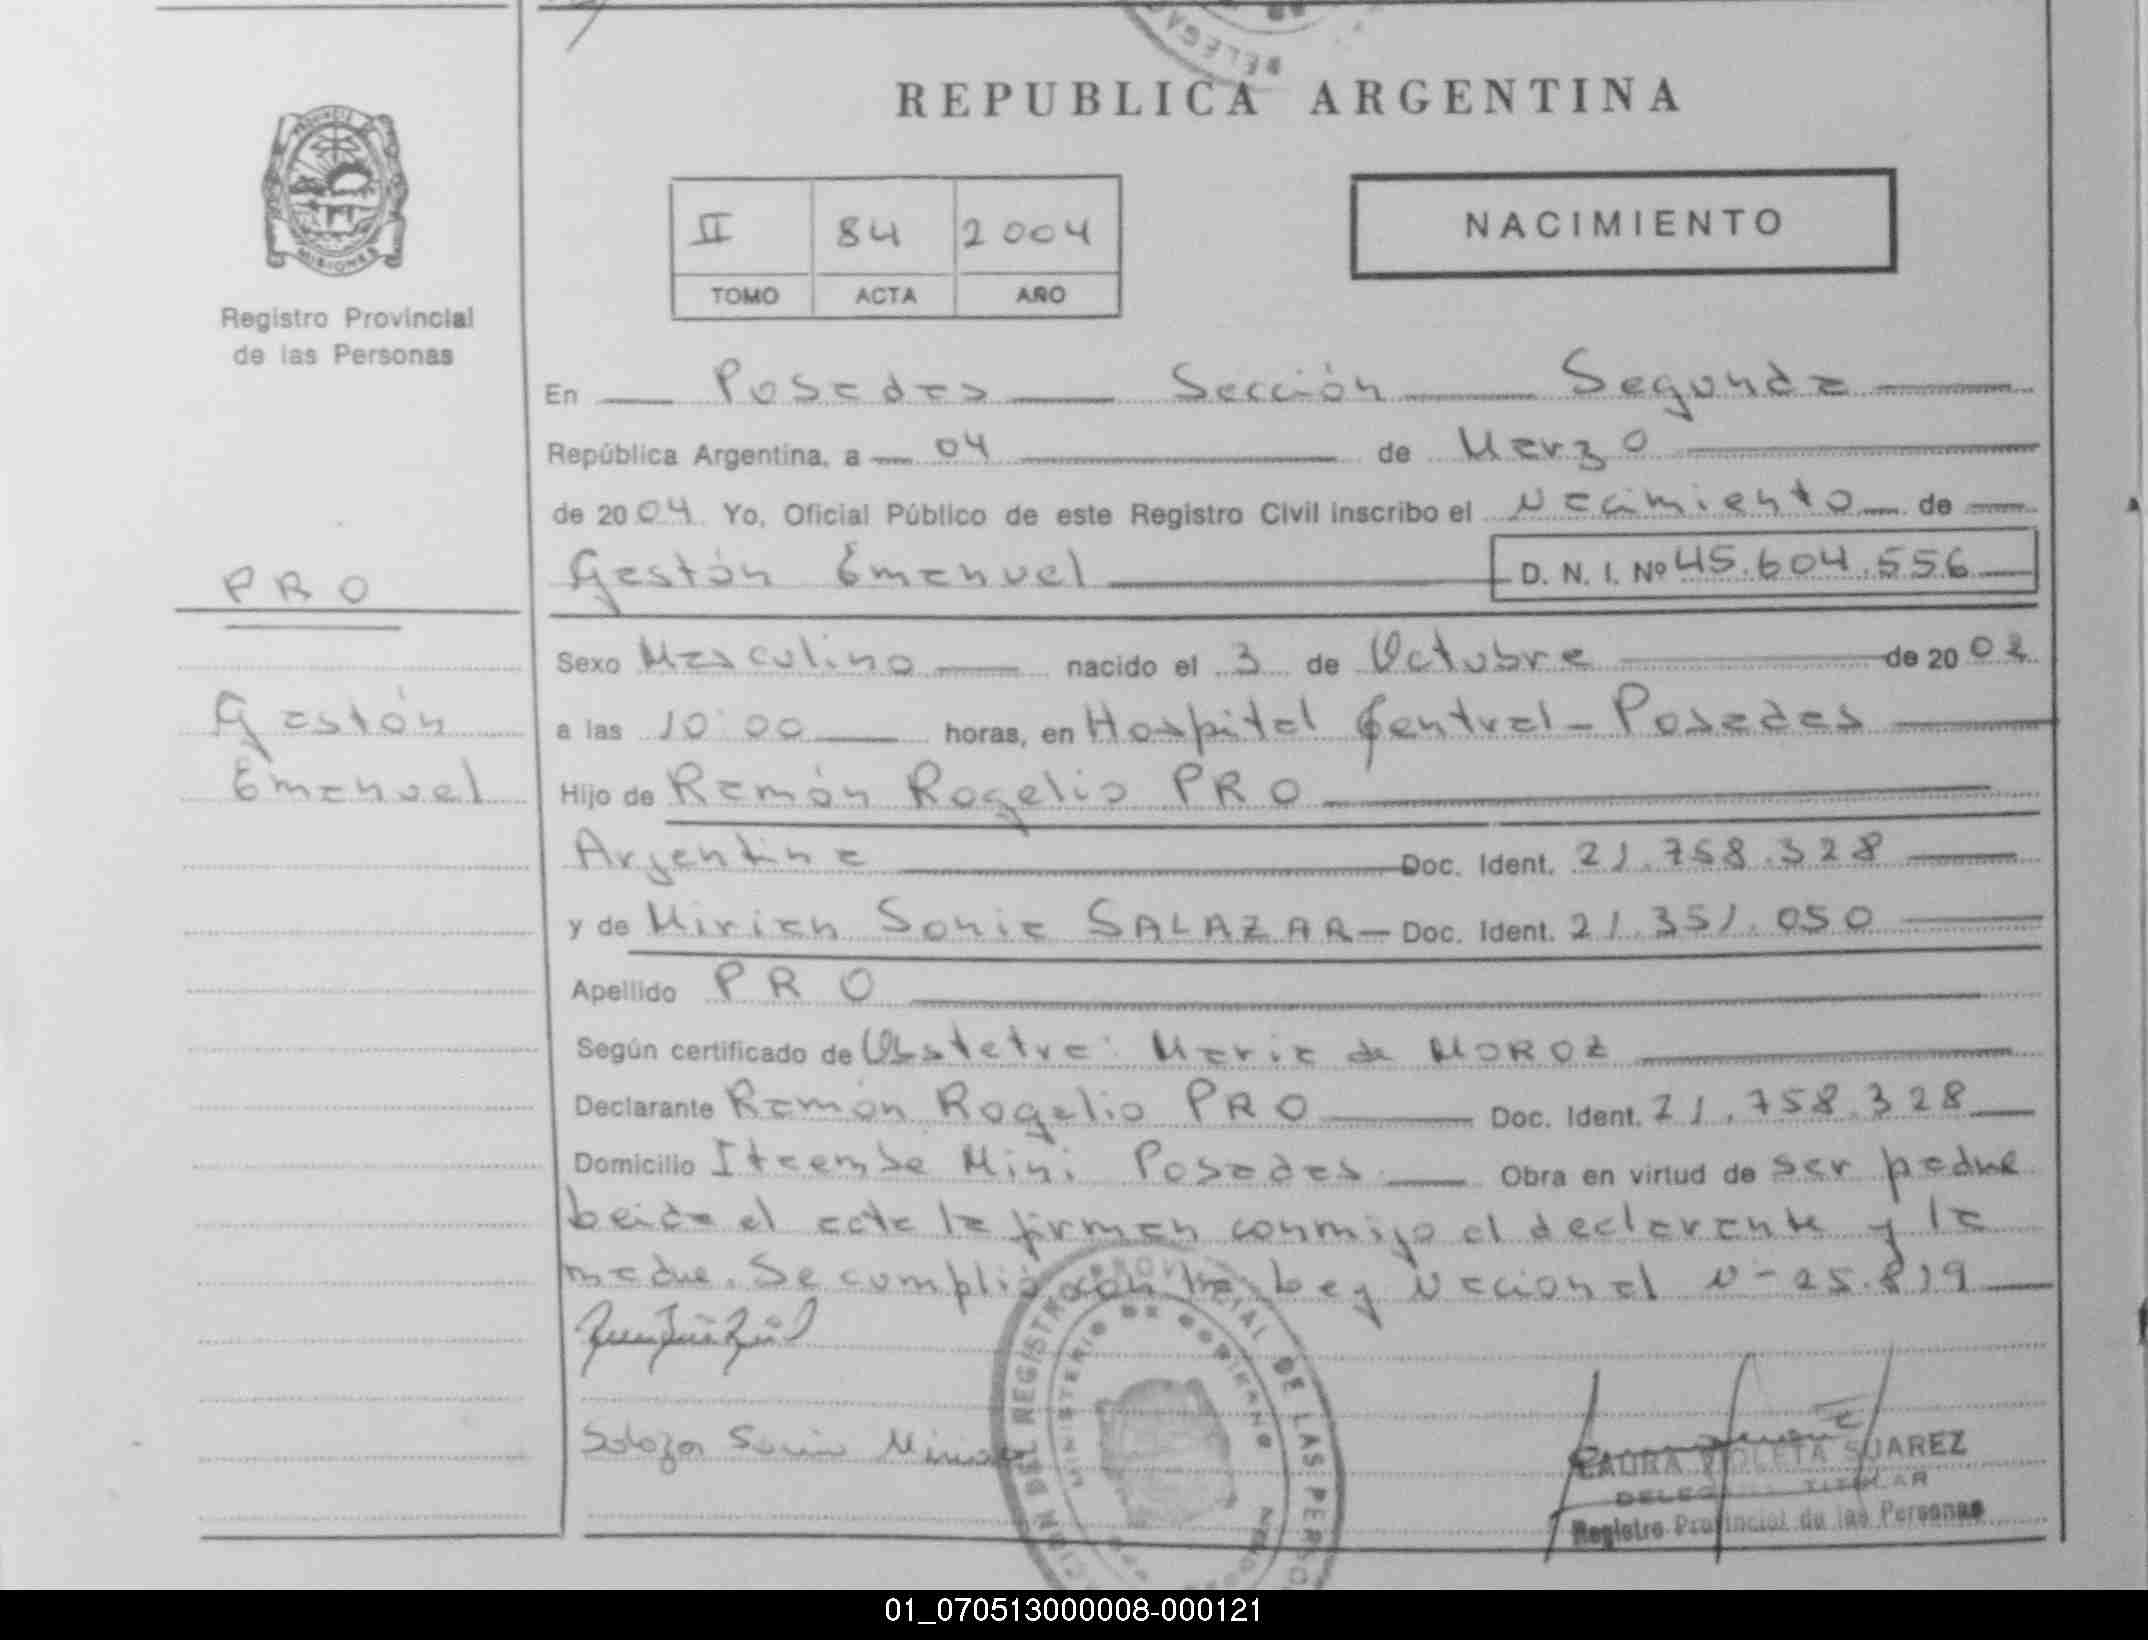 DELEGA
REPUBLICA ARGENTINA
PROVINCIA DE
MISIONES
II 84 2004
TOMO ACTA AÑO
NACIMIENTO
Registro Provincial
de las Personas
En Posadas Sección Segunda
República Argentina, a 04 de Marzo
de 2004 Yo, Oficial Público de este Registro Civil inscribo el Nacimiento de
PRO
Gastón Emanuel D. N. I. Nº 45.604.556
Sexo Masculino nacido el 3 de Octubre de 20
Gastón
Emanuel
a las 10:00 horas, en Hospital Central - Posadas
Hijo de Ramón Rogelio PRO
Argentina Doc. Ident. 21.758.328
y de Mirian Sonia SALAZAR - Doc. Ident. 21.351.050
Apellido PRO
Según certificado de Obstetra: Maria de MOROZ
Declarante Ramón Rogelio PRO Doc. Ident. 21.758.328
Domicilio Itaembe Mini Posadas Obra en virtud de ser padre
Leida el acta la firman conmigo el declarante y la
madre. Se cumplió con la Ley Nacional N-25.819
Salazar Sonia Mirian
DEL REGISTRO PROVINCIAL DE LAS PERSO
MINISTERIO DE GOBIERNO
LAURA VIOLETA SUAREZ
DELEGADA TITULAR
Registro Provincial de las Personas
01_070513000008-000121